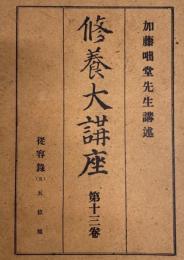 加藤咄堂先生講述
修養大講座
第十三卷
從容錄(五)
五位頌